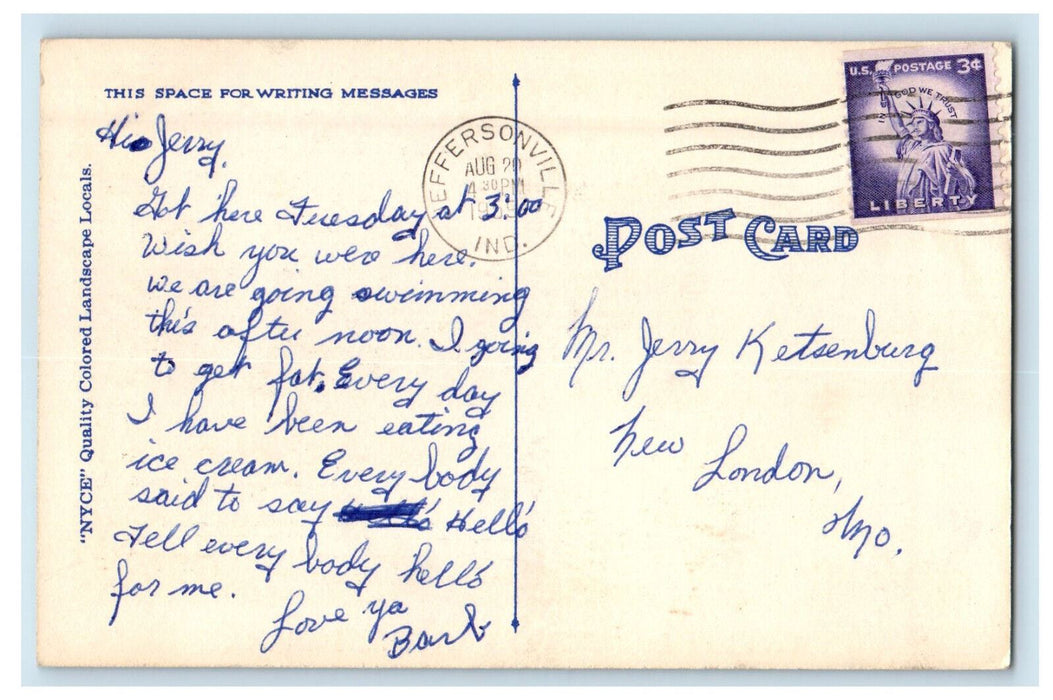 THIS SPACE FOR WRITING MESSAGES
Hi Jerry,
Got here Tuesday at 3:00
Wish you were here.
we are going swimming
this after noon. I going
to get fat. Every day
I have been eating
ice cream. Every body
said to say Hello
Tell every body hello
for me.
Love ya
Barb
"NYCE" Quality Colored Landscape Locals.
JEFFERSONVILLE
AUG 20
4 30 PM
IND.
U.S. POSTAGE 3¢
IN GOD WE TRUST
LIBERTY
POST CARD
Mr. Jerry Ketsenburg
New London,
Mo.